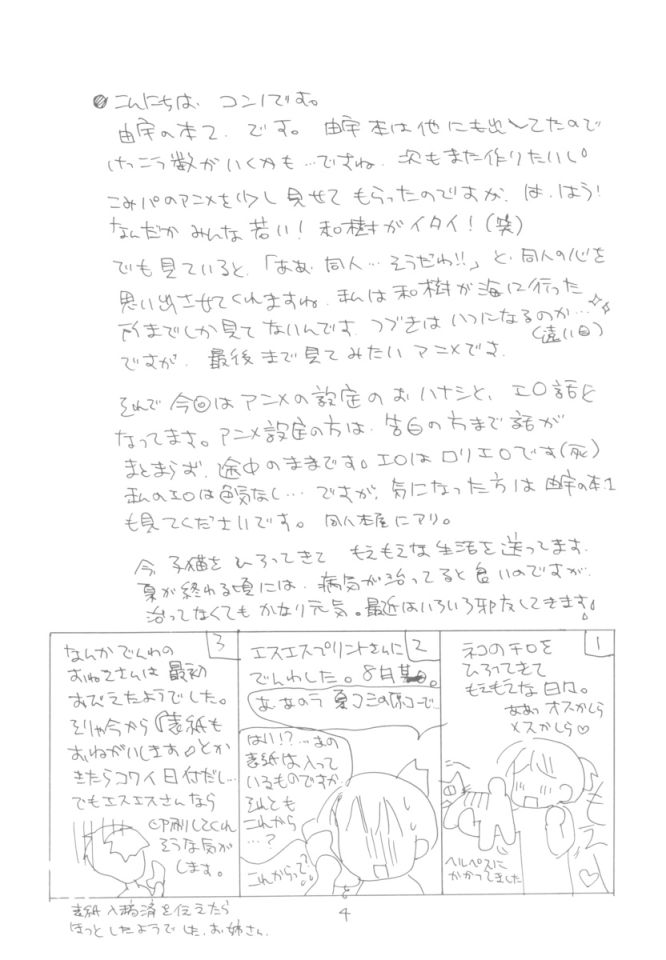 こんにちは、コンノです。
由宇の本2、です。由宇本は他にも出してたので
けっこう数がいくかも…ですね、次もまた作りたいし。
こみパのアニメを少し見せてもらったのですが、は、はう!
なんだかみんな若い!和樹がイタイ!(笑)
でも見ていると、「ああ、同人…そうだわ!!」と、同人の心を
思い出させてくれますね、私は和樹が海に行った
所までしか見てないんです、つづきはいつになるのか…
(遠い目)
ですが、最後まで見てみたいアニメです。
それで今回はアニメの設定のおハナシと、エロ話と
なってます。アニメ設定の方は、告白の方まで話が
まとまらず、途中のままです。エロはロリエロです(死)
私のエロは色気なし…ですが、気になった方は由宇の本1
も見てくださいです。同人本屋にアリ。
今子猫をひろってきてもえもえな生活を送ってます、
夏が終わる頃には、病気が治ってると良いのですが、
治ってなくてもかなり元気。最近はいろいろ邪友してきます!
1
ネコのチロを
ひろってきて
もえもえな日々。
ああっオスかしら
メスかしら♡
もえ
ヘルペスに
かかってました
2
エスエスプリントさんに
でんわした。8日某日。
あ、あのう夏コミの原コーで…
はい!?…あの
表紙は入って
いるものですが
それとも
これから
…?
これからって?!
3
なんかでんわの
おねえさんは最初
おびえたようでした。
そりゃ今から『表紙も
おねがいします♪』とか
きたらコワイ日付だし…
でもエスエスさんなら
印刷してくれ
そうな気が
します。
表紙入稿済を伝えたら
ほっとしたようでした、お姉さん。
4